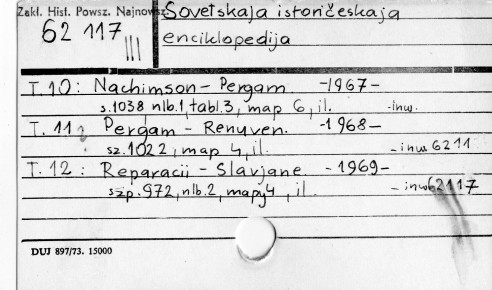 Zakł. Hist. Powsz. Najnowsz.
Sovetskaja istoričeskaja
62 117
III
enciklopedija
T. 10: Nachimson - Pergam. - 1967 -
s. 1038 nlb. 1, tabl. 3, map 6, il. - inw.
T. 11: Pergam - Renuven. - 1968 -
sz. 1022, map 4, il. - inw 6211
T. 12: Reparacii - Slavjane. - 1969 -
szp. 972, nlb. 2, mapy 4, il. - inw 62117
DUJ 897/73. 15000